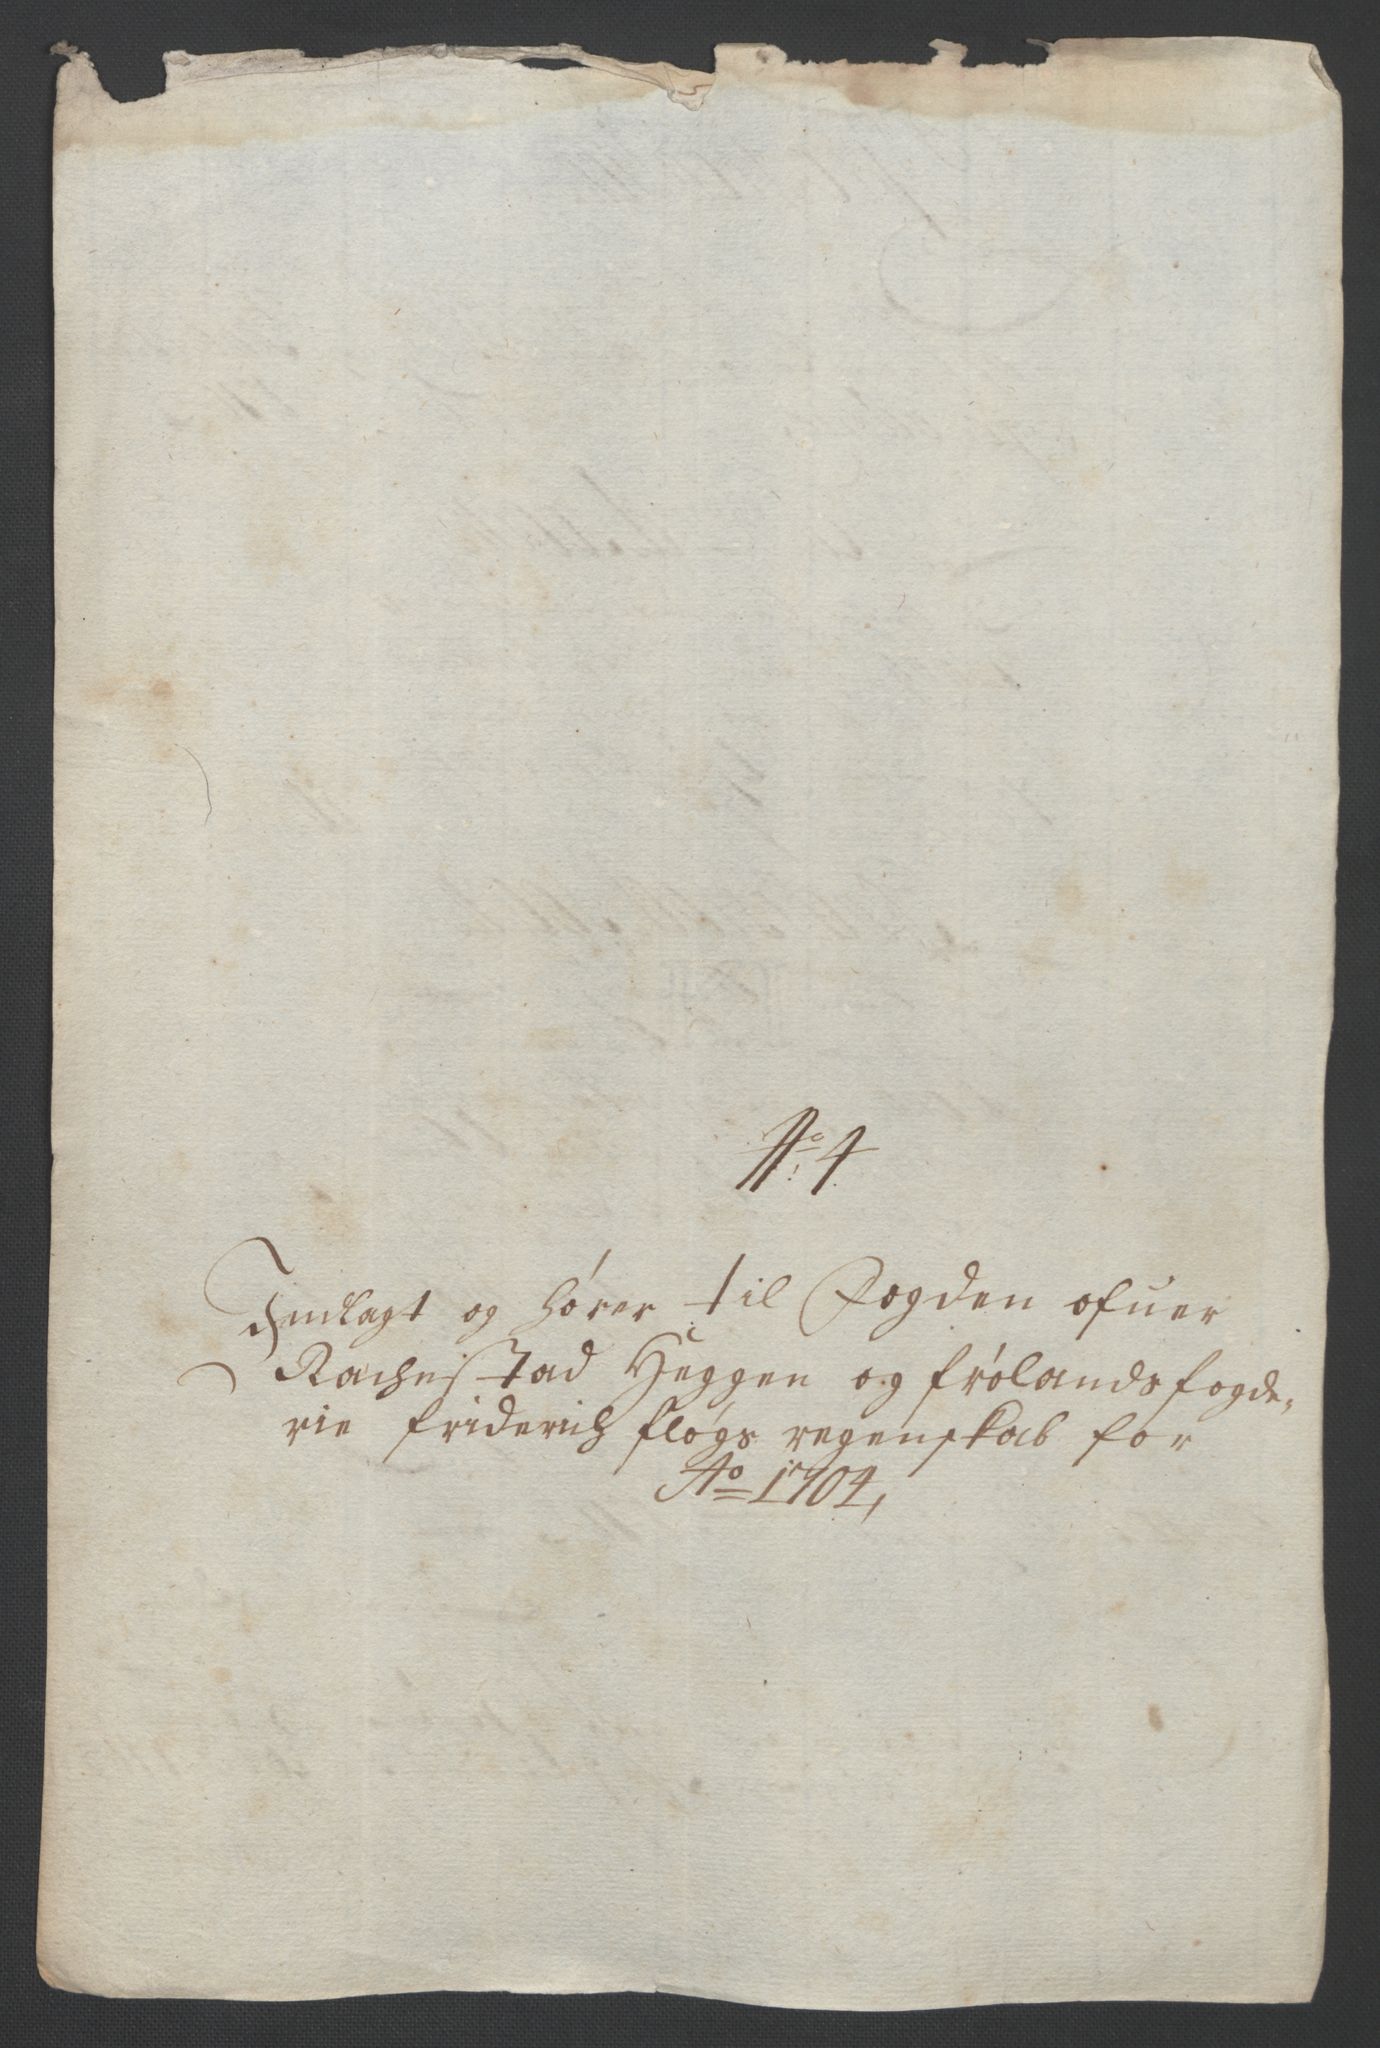 No 4
Indlagt og hörer til Fogden ofuer
Rachestad Heggen og frölands fogde-
rie friderich flögs regenskab for
Ao 1704,